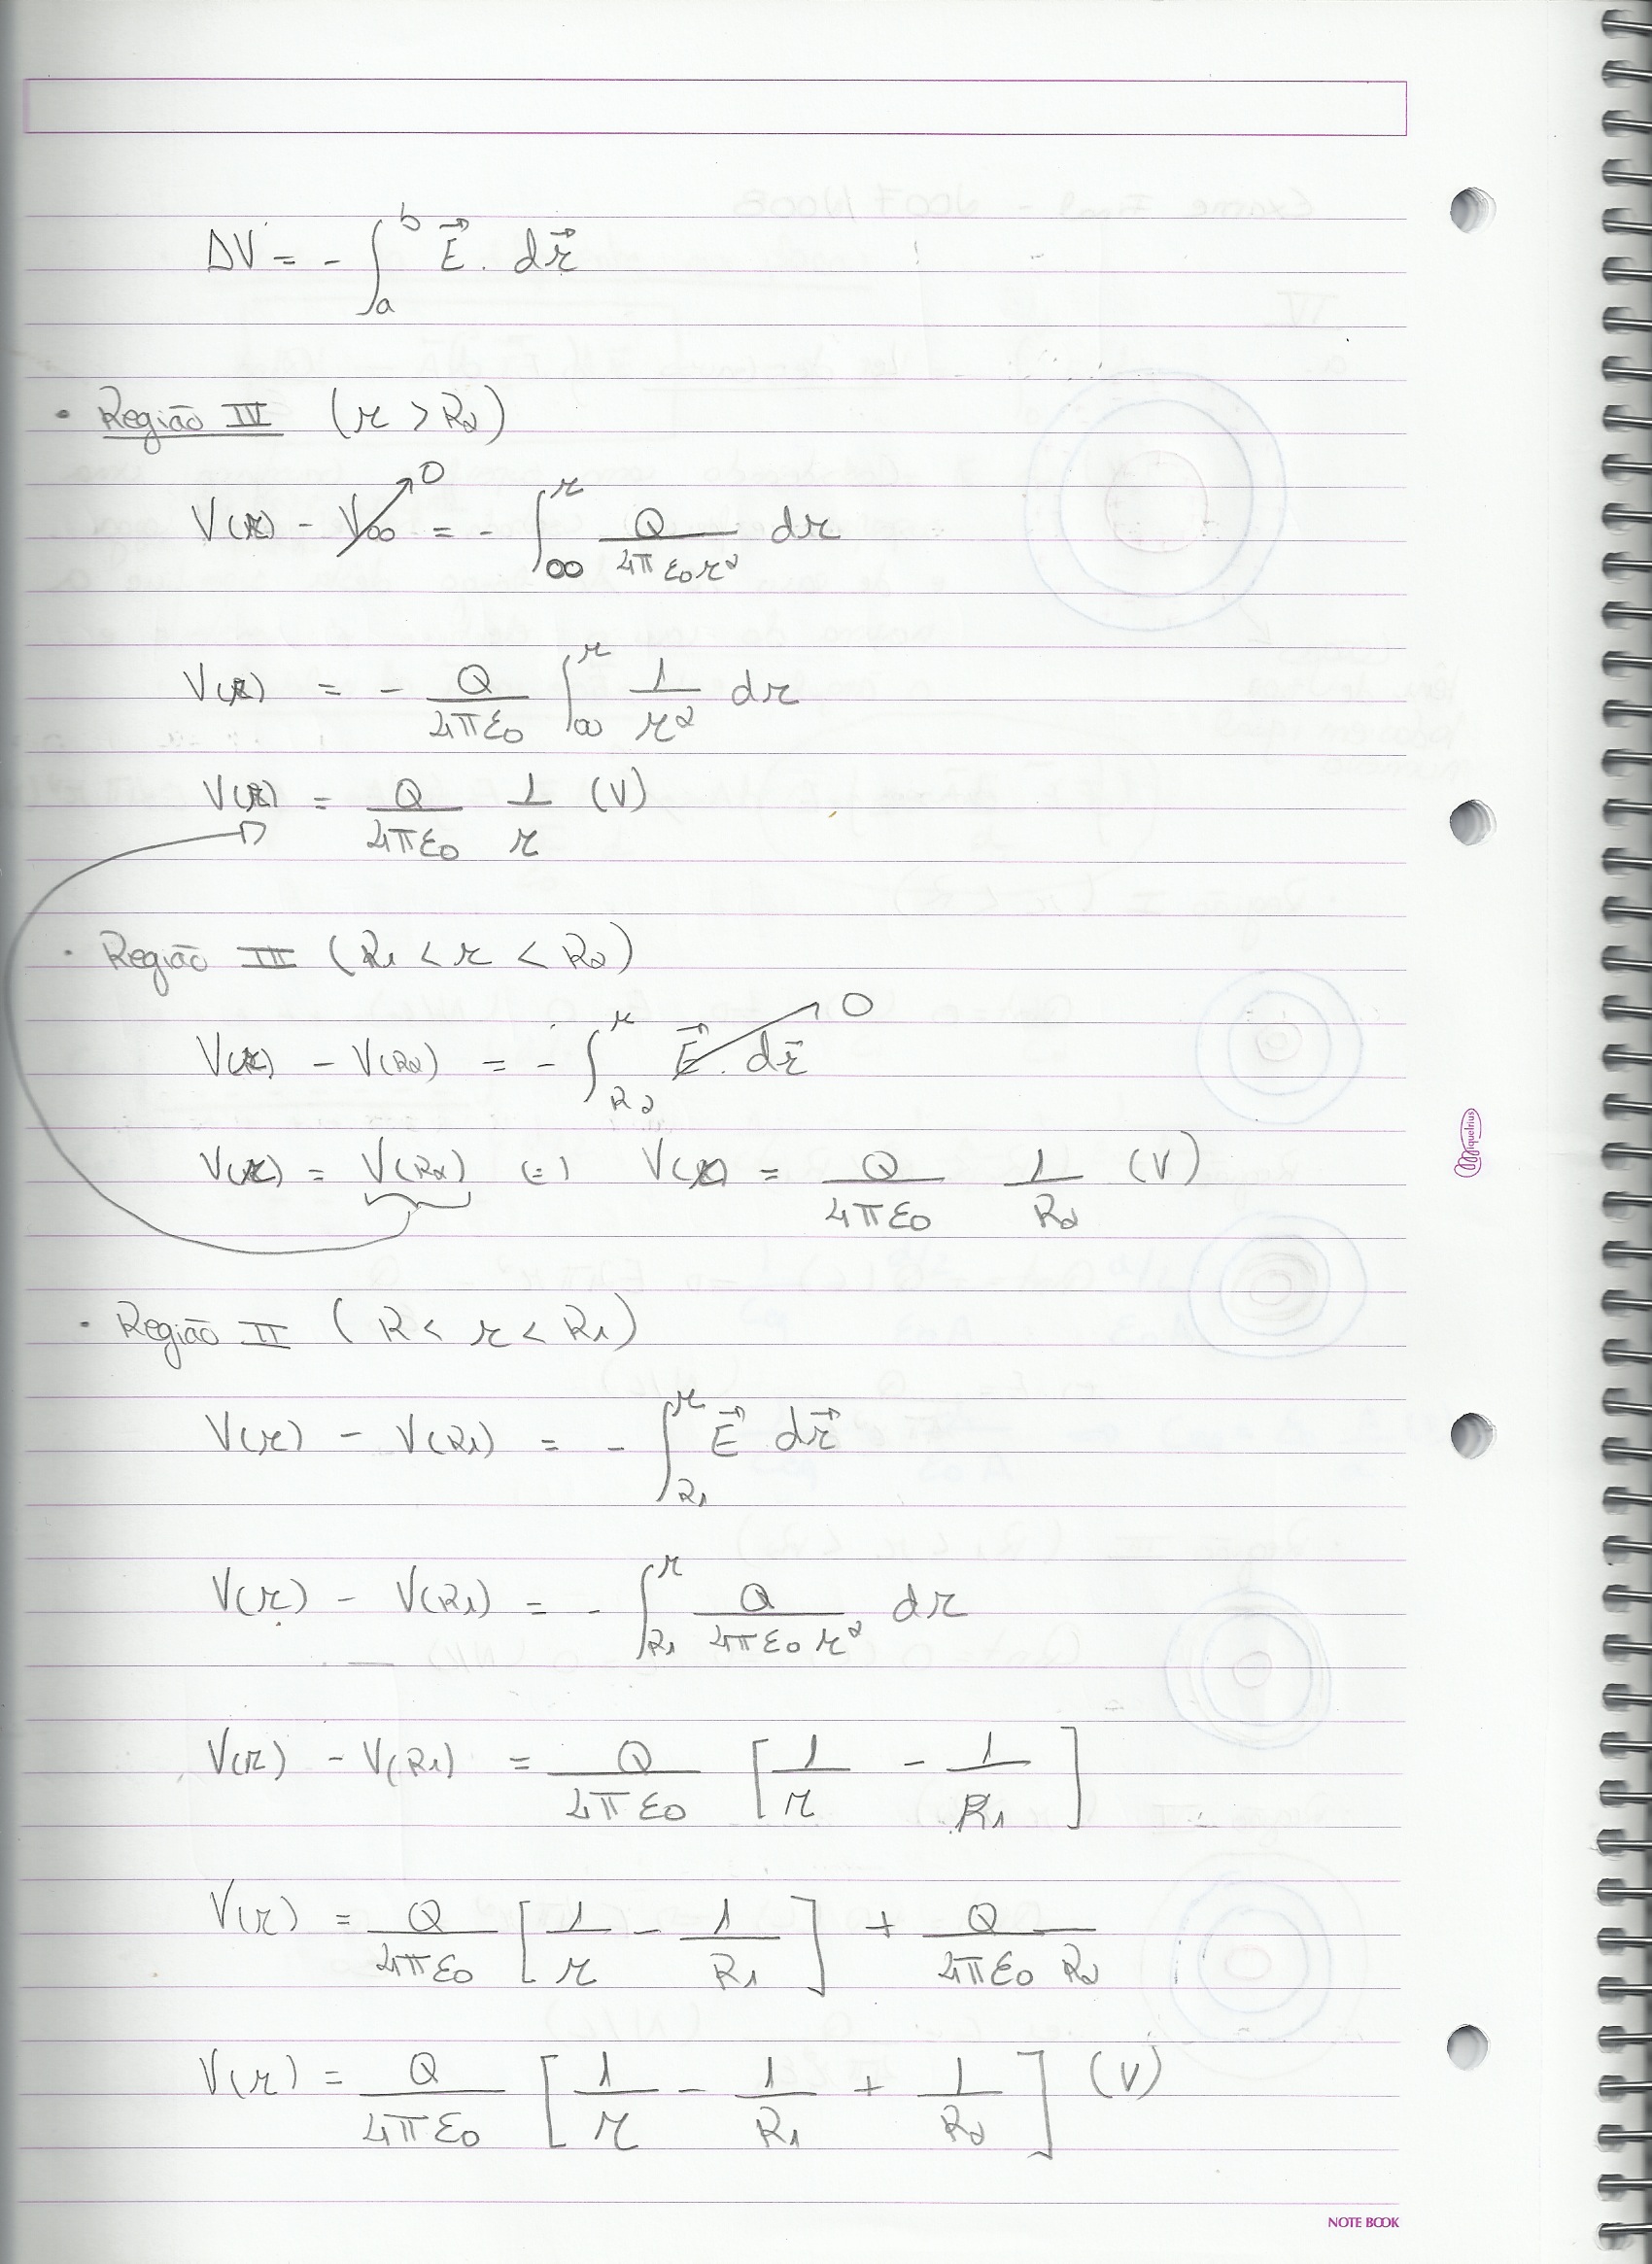 ΔV = - ∫_a^b E⃗ . dr⃗
• Região IV (r > R2)
V(r) - V∞ → 0 = - ∫_∞^r Q/(4πε0r²) dr
V(r) = - Q/(4πε0) ∫_∞^r 1/r² dr
V(r) = Q/(4πε0) 1/r (V)
• Região III (R1 < r < R2)
V(r) - V(R2) = - ∫_R2^r E⃗ . dr⃗ → 0
V(r) = V(R2) (=) V(r) = Q/(4πε0) 1/R2 (V)
• Região II (R < r < R1)
V(r) - V(R1) = - ∫_R1^r E⃗ dr⃗
V(r) - V(R1) = - ∫_R1^r Q/(4πε0 r²) dr
V(r) - V(R1) = Q/(4πε0) [1/r - 1/R1]
V(r) = Q/(4πε0) [1/r - 1/R1] + Q/(4πε0 R2)
V(r) = Q/(4πε0) [1/r - 1/R1 + 1/R2] (V)
Miquelrius
NOTE BOOK